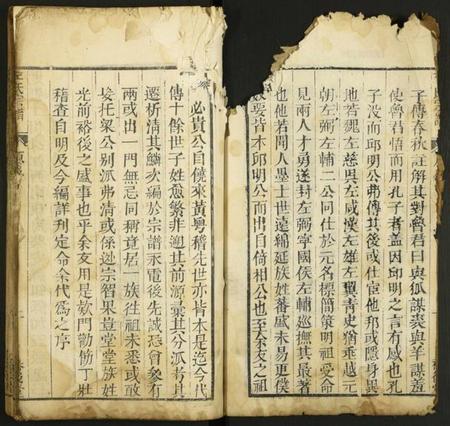 子傳春秋註解其對魯君曰與狐謀裘與羊謀羞
使魯君悟而用孔子者蓋因邱明之言有感也孔
子没而邱明公弗傳其後或仕宦他邦或隱身異
地若魏左慈吳左咸漢左雄左豐青史猶垂越元
朝左弼左輔二公同仕於元名標簡策明祖受命
見兩人才勇遂封左弼寧國侯左輔巡撫其最著
也他若間人墨士世遠綿延族姓蕃盛未易更僕
數要皆本邱明公而出自倚相公也至余友之祖
必貴公自僕來黃粤稽先世亦皆本是迄今代
傳十餘世子姓愈繁非遡其前源彙其分派考其
遷析清其鱗次編於宗譜永電後先誠恐會參有
兩或出一門無忌同稱竟居一族往祖未悉或敢
妄托梁公別派弗清或係遜宗智果豈堂堂族姓
光前裕後之盛事也乎余友用是欵門勸飭丁壯
稽查自明及今編詳刋定命余代為之序